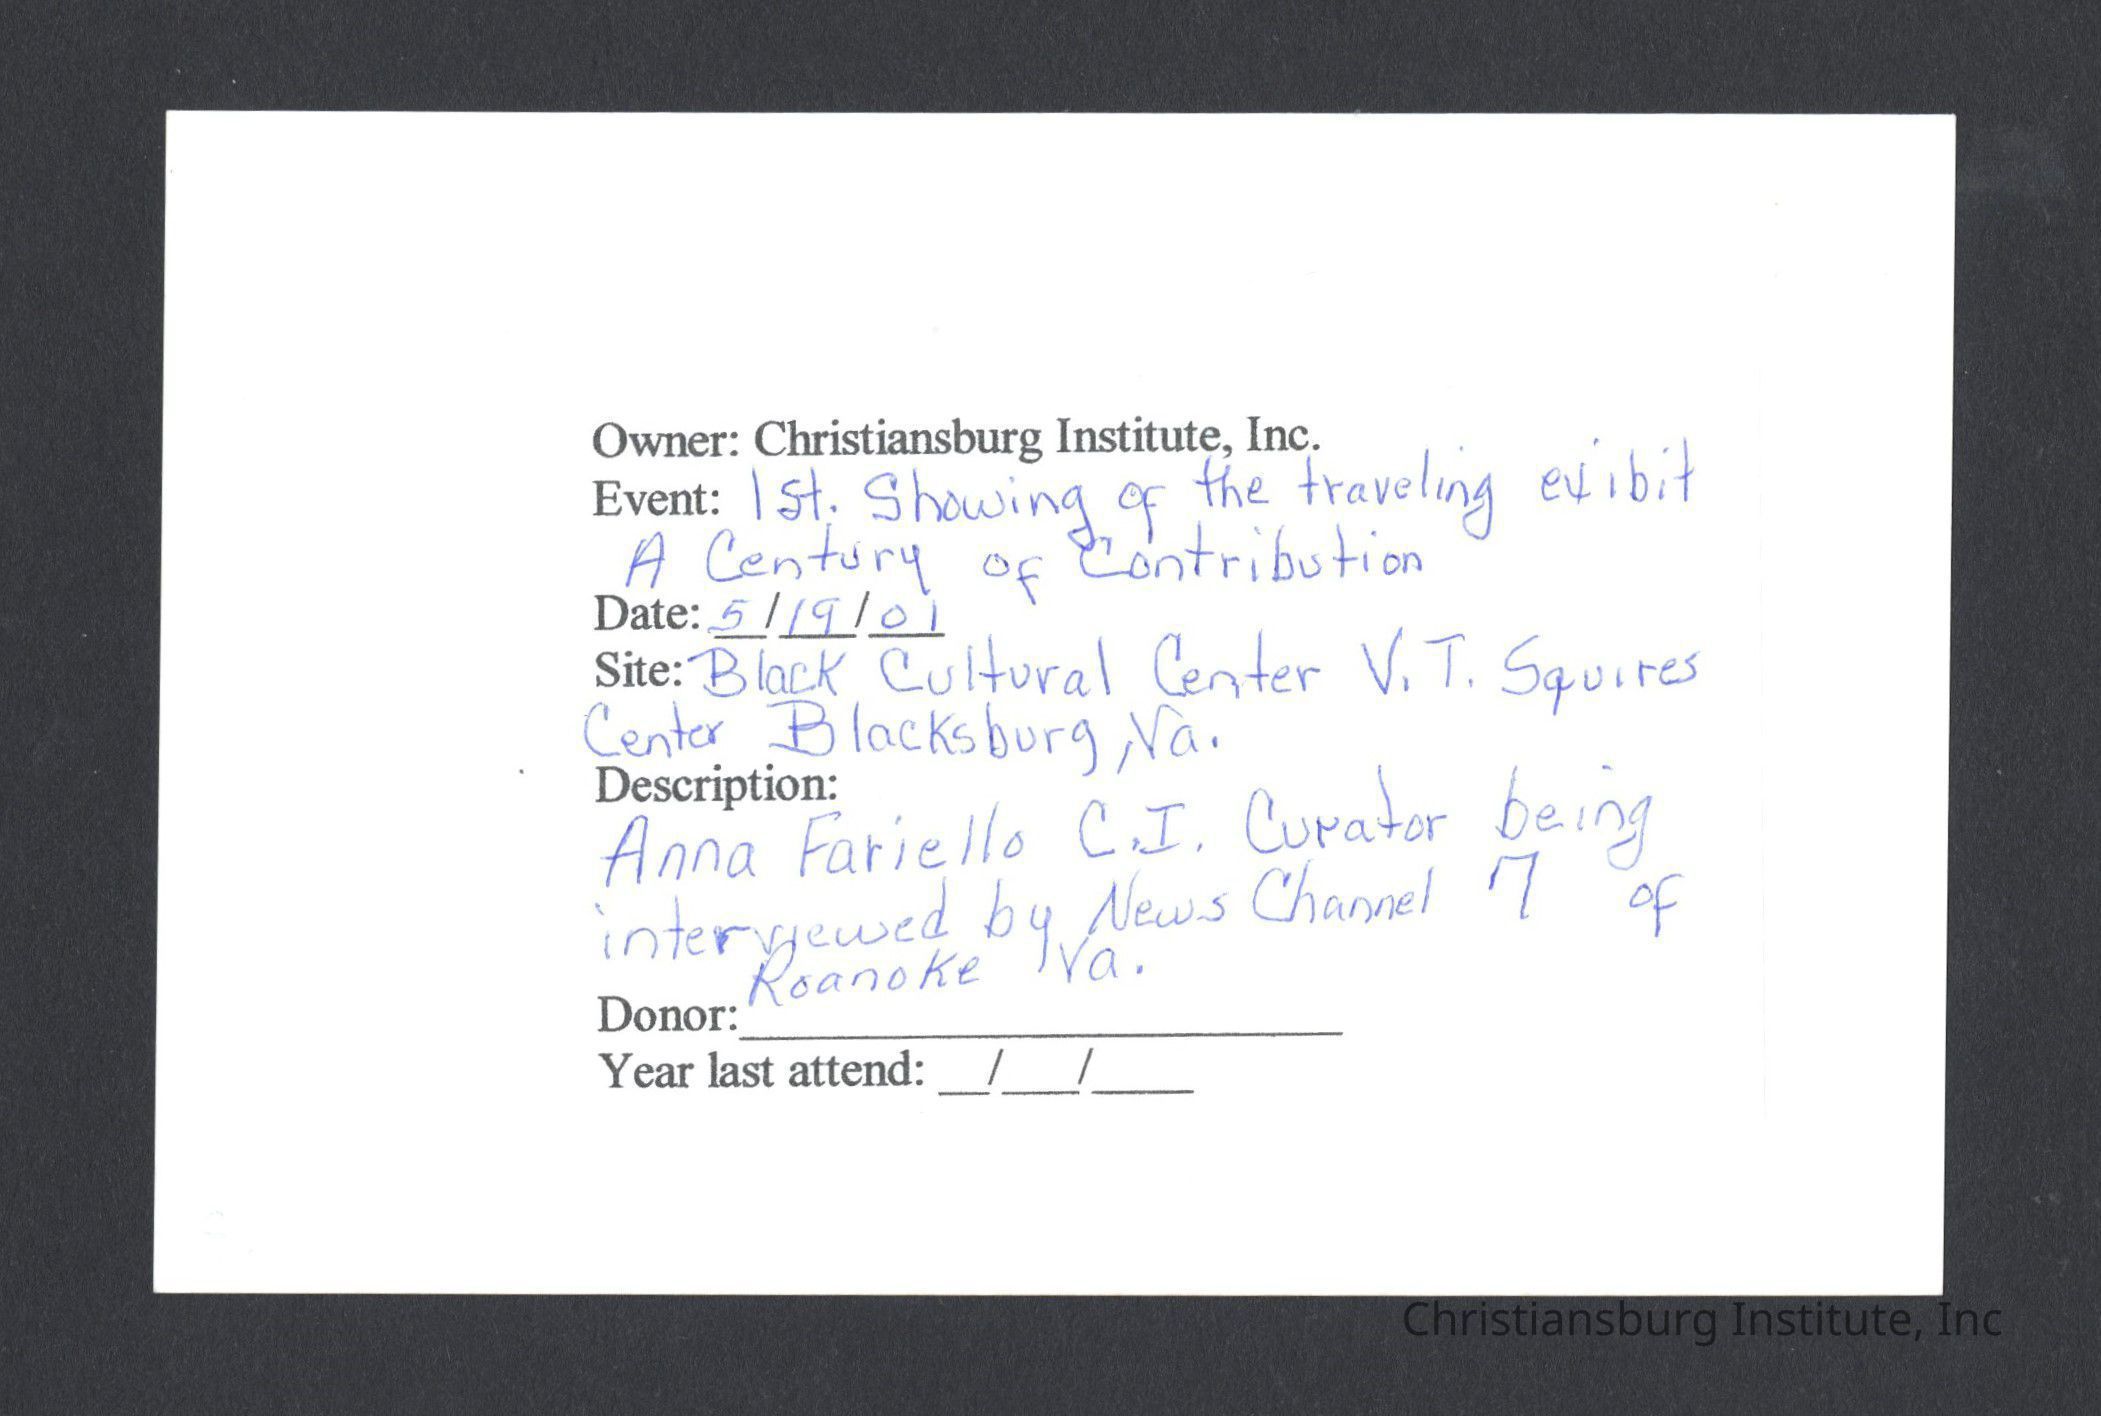 Owner: Christiansburg Institute, Inc.
Event: 1st. Showing of the traveling exibit
A Century of Contribution
Date: 5/19/01
Site: Black Cultural Center V.T. Squires
Center Blacksburg, Va.
Description:
Anna Fariello C.I. Curator being
interviewed by News Channel 7 of
Roanoke Va.
Donor:
Year last attend: __/___/____
Christiansburg Institute, Inc